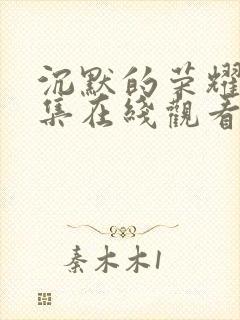 沉默的荣耀
集在线觀看
秦木木1